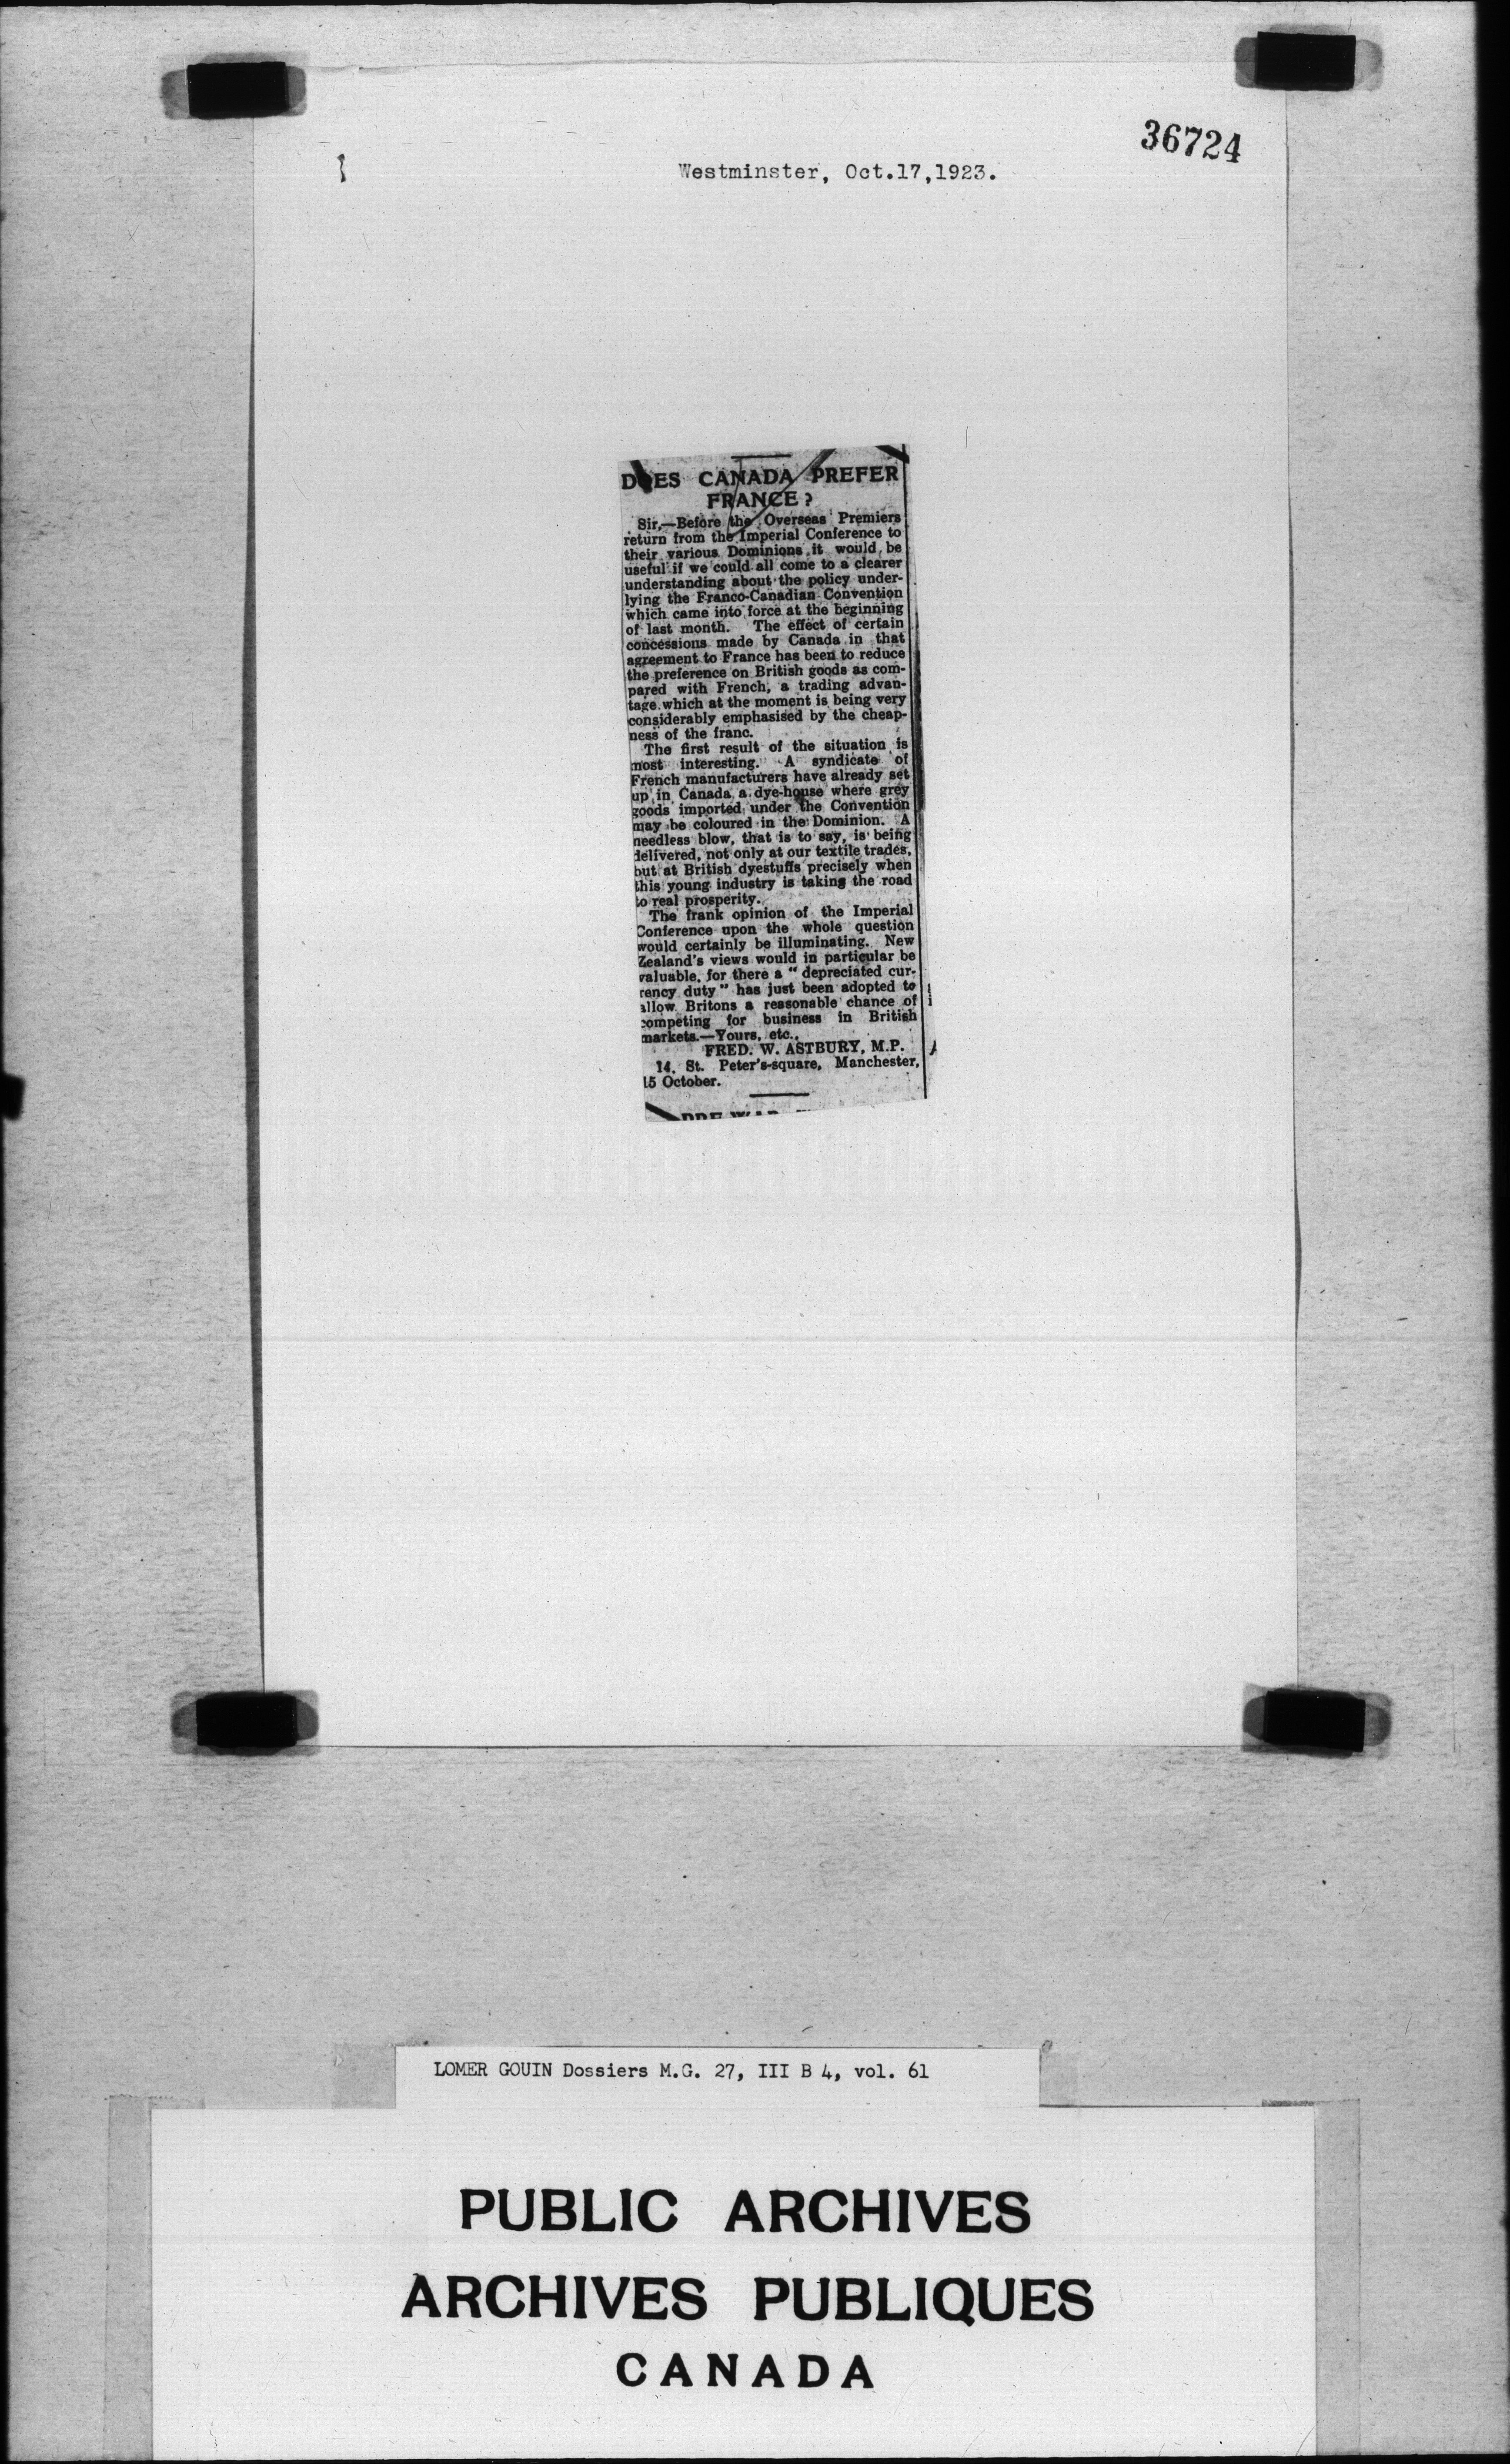 36724
Westminster, Oct.17,1923.
DOES CANADA PREFER
FRANCE?
Sir,—Before the Overseas Premiers
return from the Imperial Conference to
their various Dominions it would be
useful if we could all come to a clearer
understanding about the policy under-
lying the Franco-Canadian Convention
which came into force at the beginning
of last month. The effect of certain
concessions made by Canada in that
agreement to France has been to reduce
the preference on British goods as com-
pared with French, a trading advan-
tage which at the moment is being very
considerably emphasised by the cheap-
ness of the franc.
The first result of the situation is
most interesting. A syndicate of
French manufacturers have already set
up in Canada a dye-house where grey
goods imported under the Convention
may be coloured in the Dominion. A
needless blow, that is to say, is being
delivered, not only at our textile trades,
but at British dyestuffs precisely when
this young industry is taking the road
to real prosperity.
The frank opinion of the Imperial
Conference upon the whole question
would certainly be illuminating. New
Zealand's views would in particular be
valuable, for there a "depreciated cur-
rency duty" has just been adopted to
allow Britons a reasonable chance of
competing for business in British
markets.—Yours, etc.,
FRED. W. ASTBURY, M.P.
14, St. Peter's-square, Manchester,
15 October.
LOMER GOUIN Dossiers M.G. 27, III B 4, vol. 61
PUBLIC ARCHIVES
ARCHIVES PUBLIQUES
CANADA